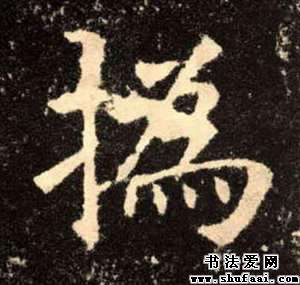 撝
书法爱网
www.shufaai.com